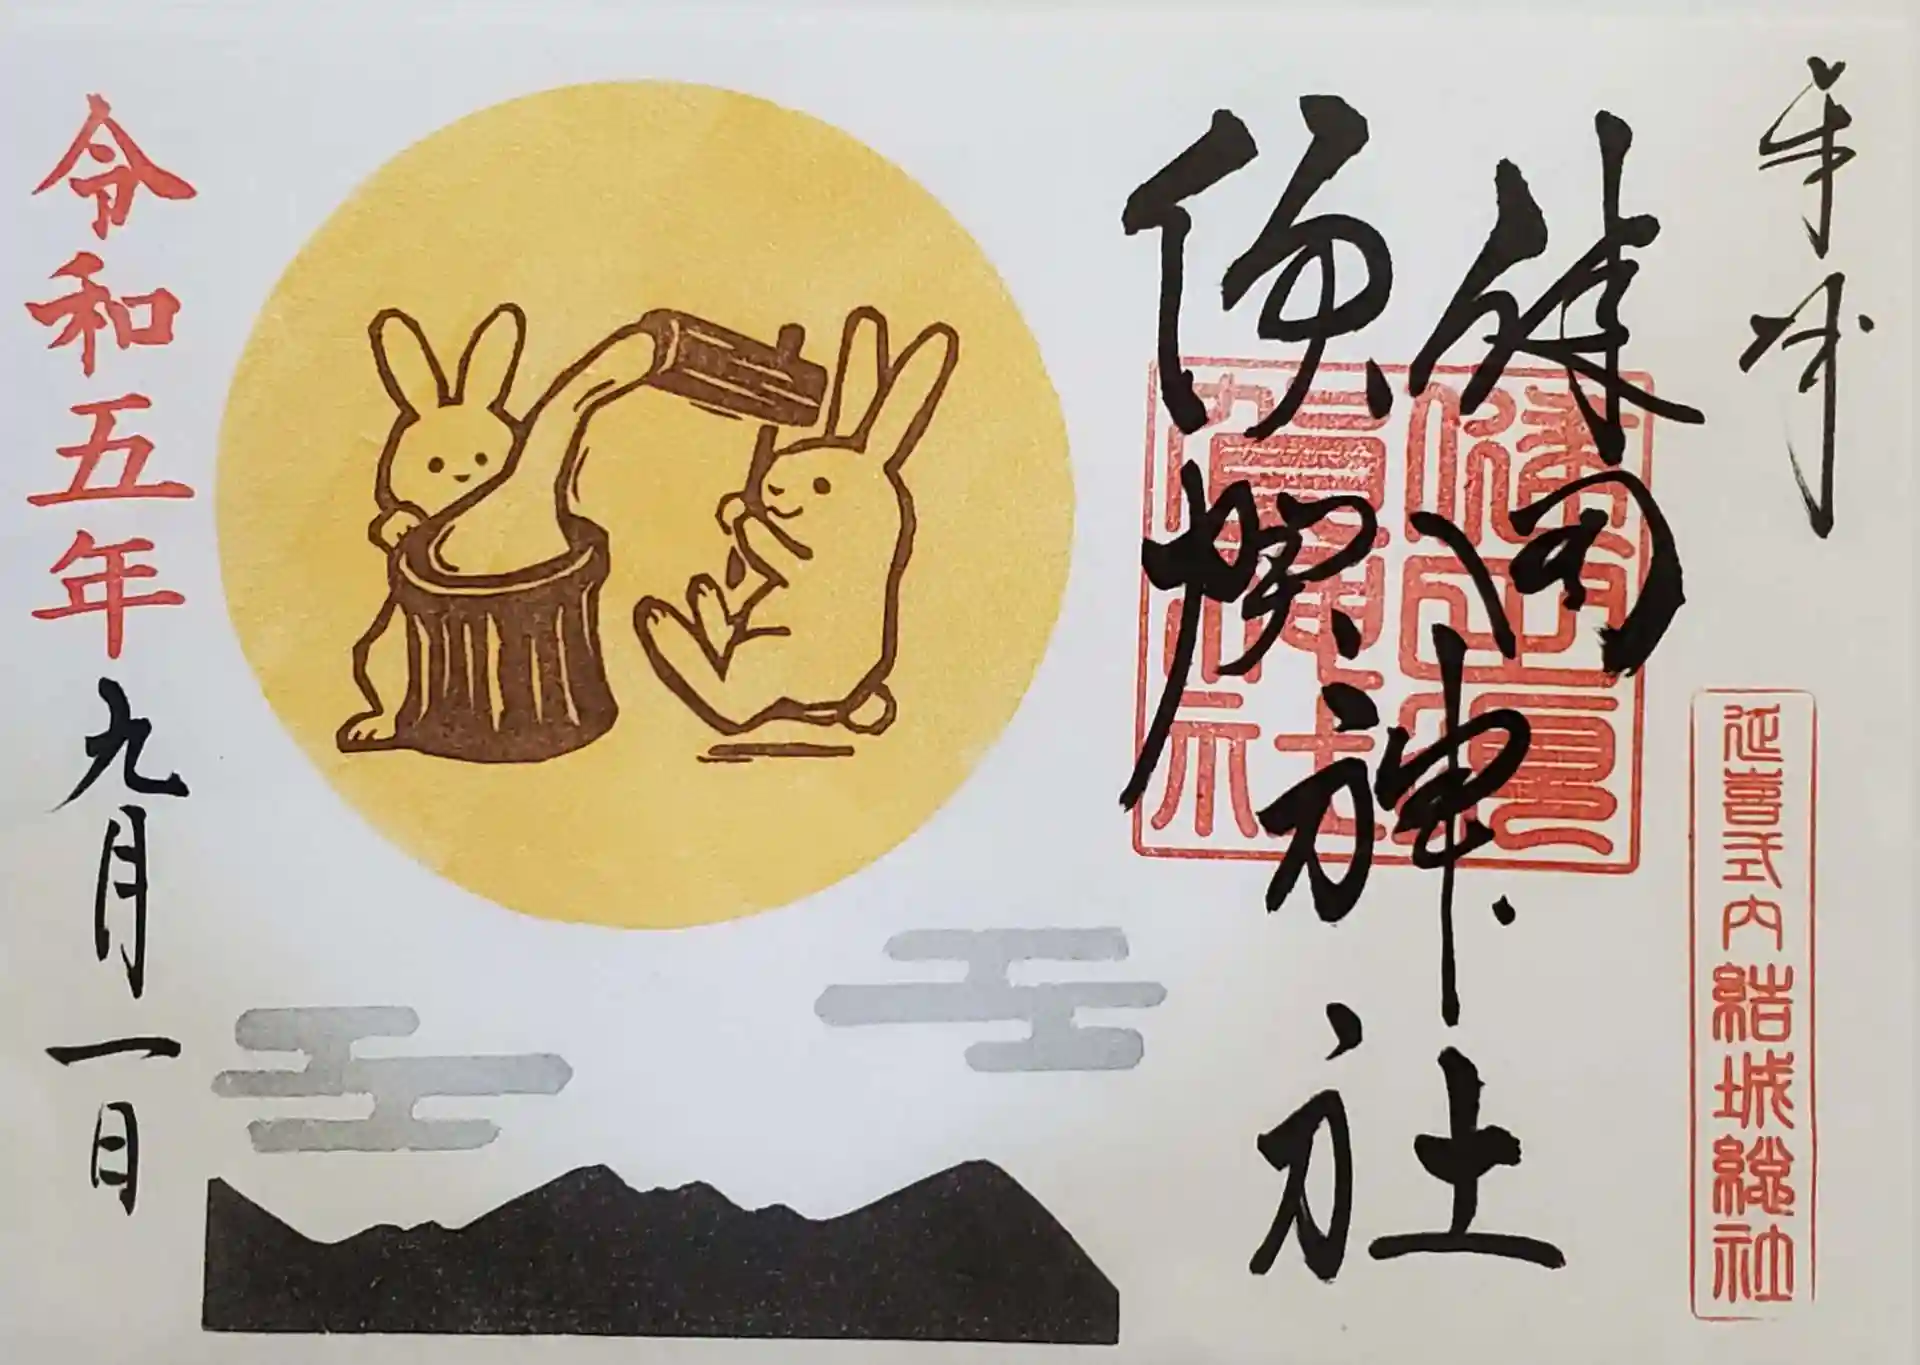 奉拝
延喜式内結城総社
健田
須賀神社
健田須
賀神社
令和五年九月一日